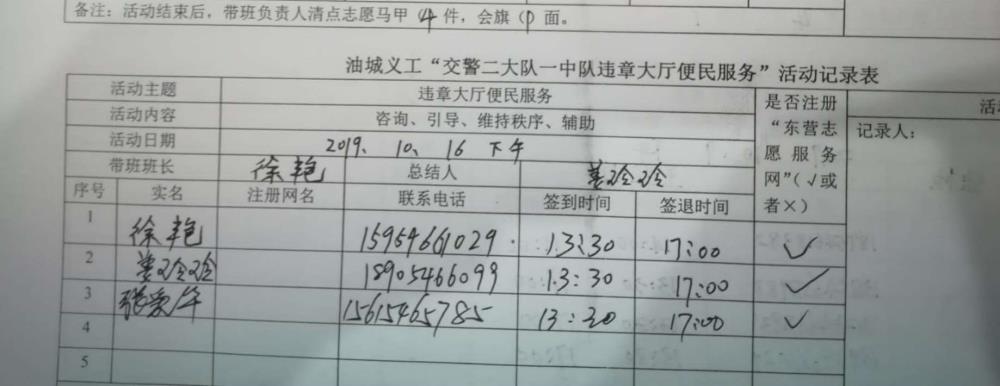 备注：活动结束后，带班负责人清点志愿马甲（4件，会旗（1）面。
油城义工“交警二大队一中队违章大厅便民服务”活动记录表
活动主题 违章大厅便民服务 是否注册“东营志愿服务网”（√或者×）
活动内容 咨询、引导、维持秩序、辅助 记录人：
活动日期 2019、10、16 下午
带班班长 徐艳 总结人 姜玲玲
序号 实名 注册网名 联系电话 签到时间 签退时间
1 徐艳 15954661029 13:30 17:00 ✓
2 姜玲玲 18905466099 13:30 17:00 ✓
3 15615465785 13:30 17:00 ✓
4
5